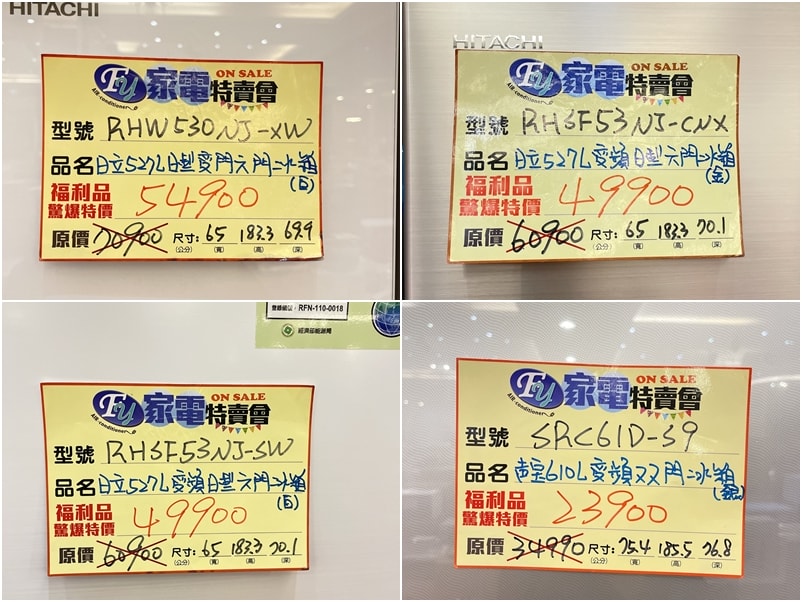 HITACHI
FU 家電特賣會 ON SALE
AIR-conditioner
型號 RHW530NJ-XW
品名 日立527L日型變門六門冰箱
(白)
福利品
驚爆特價 54900
原價 70900 尺寸: 65 183.3 69.9
(公分) (寬) (高) (深)
HITACHI
FU 家電特賣會 ON SALE
AIR-conditioner
型號 RHSF53NJ-CNX
品名 日立527L變頻日型六門冰箱
(金)
福利品
驚爆特價 49900
原價 60900 尺寸: 65 183.3 70.1
(公分) (寬) (高) (深)
登錄編號: RFN-110-0018
經濟部能源局
FU 家電特賣會 ON SALE
AIR-conditioner
型號 RHSF53NJ-SW
品名 日立527L變頻日型六門冰箱
(白)
福利品
驚爆特價 49900
原價 60900 尺寸: 65 183.3 70.1
(公分) (寬) (高) (深)
FU 家電特賣會 ON SALE
AIR-conditioner
型號 SRC61D-S9
品名 610L變頻雙門冰箱
福利品
驚爆特價 23900
原價 34990 尺寸: 75.4 185.5 76.8
(公分) (寬) (高) (深)